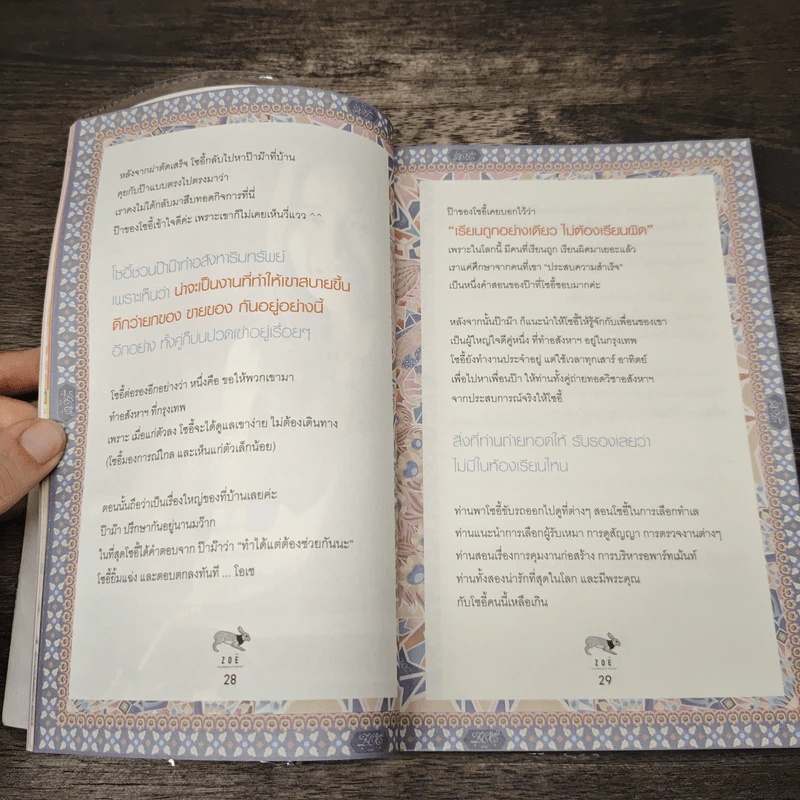 หลังจากผ่าตัดเสร็จ โซอี้กลับไปหาป๊าม๊าที่บ้าน
คุยกับป๊าแบบตรงไปตรงมาว่า
เราคงไม่ได้กลับมาสืบทอดกิจการที่นี่
ป๊าของโซอี้เข้าใจดีค่ะ เพราะเขาก็ไม่เคยเห็นวี่แวว ^^
โซอี้ชวนป๊าม๊าทำอสังหาริมทรัพย์
เพราะเห็นว่า น่าจะเป็นงานที่ทำให้เขาสบายขึ้น
ดีกว่ายกของ ขายของ กันอยู่อย่างนี้
อีกอย่าง ทั้งคู่ก็บ่นปวดเข่าอยู่เรื่อยๆ
โซอี้ต่อรองอีกอย่างว่า หนึ่งคือ ขอให้พวกเขามา
ทำอสังหาฯ ที่กรุงเทพ
เพราะ เมื่อแก่ตัวลง โซอี้จะได้ดูแลเขาง่าย ไม่ต้องเดินทาง
(โซอี้มองการณ์ไกล และเห็นแก่ตัวเล็กน้อย)
ตอนนั้นถือว่าเป็นเรื่องใหญ่ของที่บ้านเลยค่ะ
ป๊าม๊า ปรึกษากันอยู่นานมว๊าก
ในที่สุดโซอี้ได้คำตอบจาก ป๊าม๊าว่า "ทำได้แต่ต้องช่วยกันนะ"
โซอี้ยิ้มแฉ่ง และตอบตกลงทันที ... โอเช
ZOË
28
ป๊าของโซอี้เคยบอกไว้ว่า
"เรียนถูกอย่างเดียว ไม่ต้องเรียนผิด"
เพราะในโลกนี้ มีคนที่เรียนถูก เรียนผิดมาเยอะแล้ว
เราแค่ศึกษาจากคนที่เขา "ประสบความสำเร็จ"
เป็นหนึ่งคำสอนของป๊าที่โซอี้ชอบมากค่ะ
หลังจากนั้นป๊าม๊า ก็แนะนำให้โซอี้ให้รู้จักกับเพื่อนของเขา
เป็นผู้ใหญ่ใจดีคู่หนึ่ง ที่ทำอสังหาฯ อยู่ในกรุงเทพ
โซอี้ยังทำงานประจำอยู่ แต่ใช้เวลาทุกเสาร์ อาทิตย์
เพื่อไปหาเพื่อนป๊า ให้ท่านทั้งคู่ถ่ายทอดวิชาอสังหาฯ
จากประสบการณ์จริงให้โซอี้
สิ่งที่ท่านถ่ายทอดให้ รับรองเลยว่า
ไม่มีในห้องเรียนไหน
ท่านพาโซอี้ขับรถออกไปดูที่ต่างๆ สอนโซอี้ในการเลือกทำเล
ท่านแนะนำการเลือกผู้รับเหมา การดูสัญญา การตรวจงานต่างๆ
ท่านสอนเรื่องการคุมงานก่อสร้าง การบริหารอพาร์ทเม้นท์
ท่านทั้งสองน่ารักที่สุดในโลก และมีพระคุณ
กับโซอี้คนนี้เหลือเกิน
ZOË
29